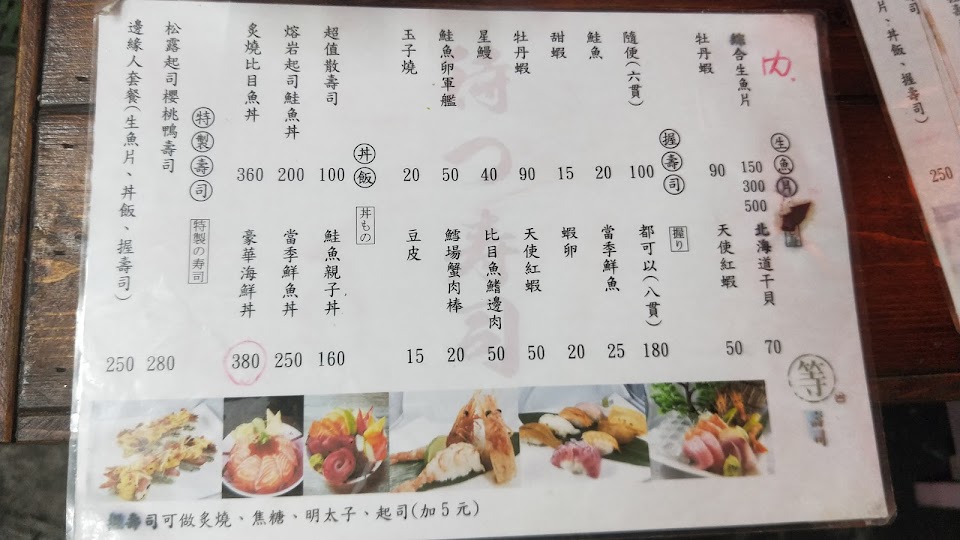 生魚片
綜合生魚片 150 300 500
北海道干貝 70
牡丹蝦 90
天使紅蝦 50
握壽司 握り
隨便(六貫) 100
都可以(八貫) 180
鮭魚 20
當季鮮魚 25
甜蝦 15
蝦卵 20
牡丹蝦 90
天使紅蝦 50
星鰻 40
比目魚鰭邊肉 50
鮭魚卵軍艦 50
鱈場蟹肉棒 20
玉子燒 20
豆皮 15
丼飯 丼もの
超值散壽司 100
鮭魚親子丼 160
熔岩起司鮭魚丼 200
當季鮮魚丼 250
炙燒比目魚丼 360
豪華海鮮丼 380
特製壽司 特製の寿司
松露起司櫻桃鴨壽司 280
邊緣人套餐(生魚片、丼飯、握壽司) 250
待つ寿司
等
壽司
內
握壽司可做炙燒、焦糖、明太子、起司(加5元)
生魚片、丼飯、握壽司)
250